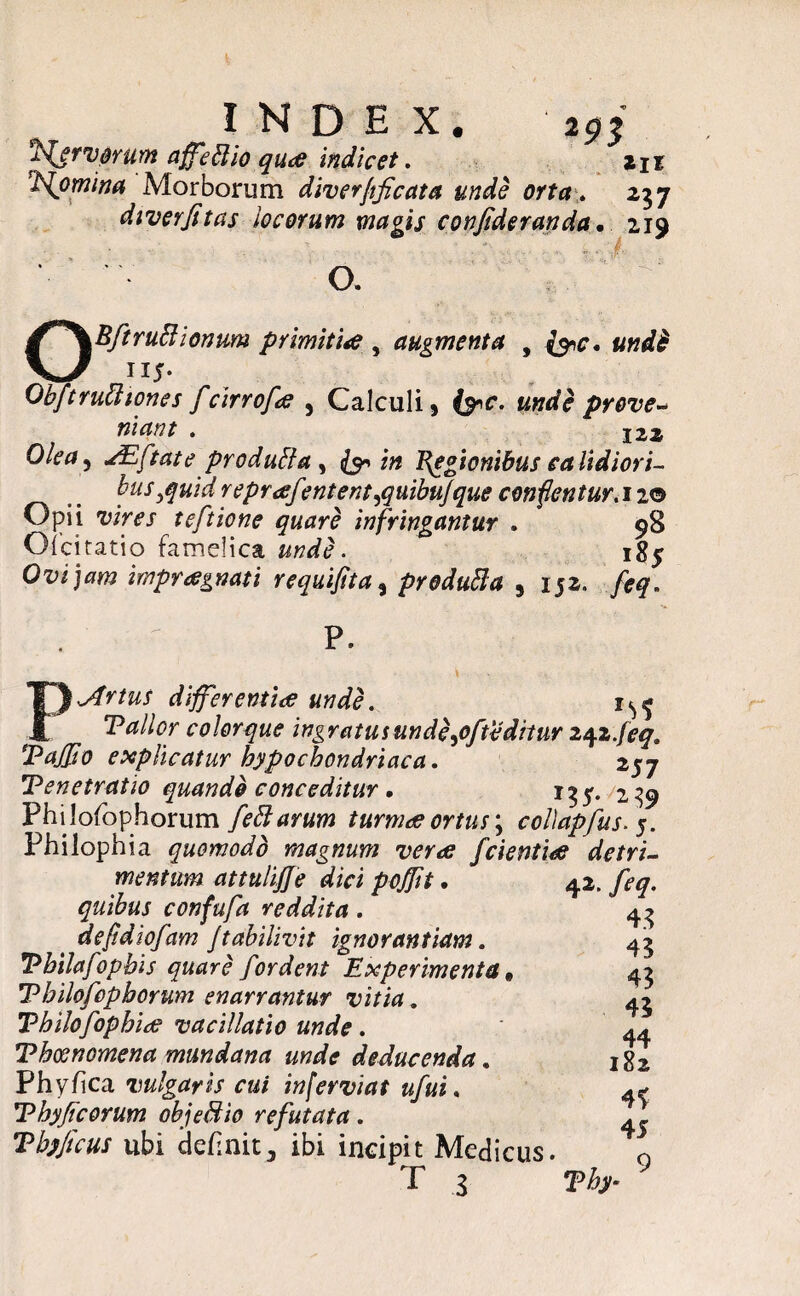 INDEX. 293
Nervorum affectio quæ indicet. 211
Nomina Morborum diversificata unde orta. 237
diversitas locorum magis consideranda. 219
O.
OBstructionum primitiæ, augmenta, &c. unde
115.
Obstructiones scirrosæ, Calculi, &c. unde prove-
niant. 122
Olea, Æstate producta, & in Regionibus calidiori-
bus, quid repræsentent, quibusque conflentur. 120
Opii vires testione quarè infringantur. 98
Oscitatio famelica undè. 185
Ovi jam imprægnati requisita, producta, 152. seq.
P.
PArtus differentiæ undè. 155
Pallor colorque ingratus undè, ostēditur 242. seq.
Passio explicatur hypochondriaca. 257
Penetratio quandò conceditur. 135. 239
Philosophorum sectarum turmæ ortus; collapsus. 5.
Philophia quomodò magnum veræ scientiæ detri-
mentum attulisse dici possit. 42. seq.
quibus confusa reddita. 43
desidiosam stabilivit ignorantiam. 43
Philasophis quarè sordent Experimenta. 43
Philosophorum enarrantur vitia. 43
Philosophiæ vacillatio unde. 44
Phœnomena mundana unde deducenda. 182
Physica vulgaris cui inserviat usui. 45
Physicorum objectio refutata. 45
Physicus ubi definit, ibi incipit Medicus. 9
T 3 Phy-